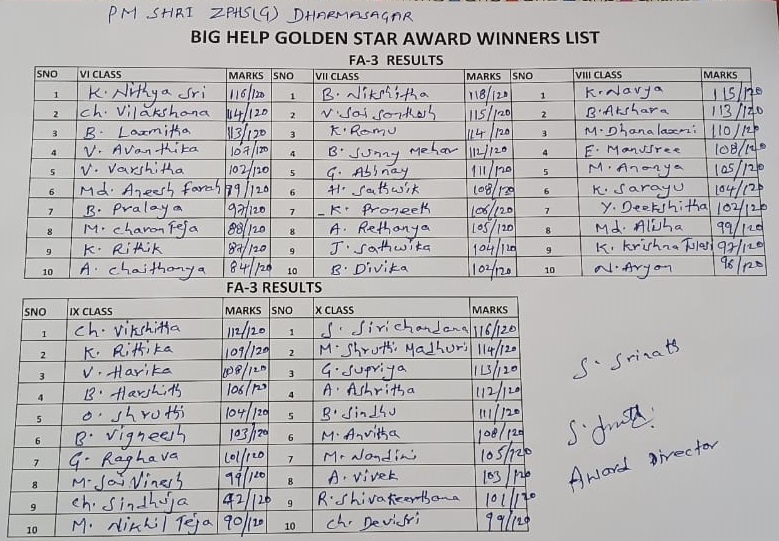 PM SHRI ZPHS(G) DHARMASAGAR
BIG HELP GOLDEN STAR AWARD WINNERS LIST
FA-3 RESULTS
SNO VI CLASS MARKS SNO VII CLASS MARKS SNO VIII CLASS MARKS
1 K. Nithya Sri 116/120 1 B. Nikshitha 118/120 1 K. Navya 115/120
2 Ch. Vilakshana 114/120 2 V. Sai Santhosh 115/120 2 B. Akshara 113/120
3 B. Laxmitha 113/120 3 K. Ramu 114/120 3 M. Dhanalaxmi 110/120
4 V. Avanthika 107/120 4 B. Sunny Mehar 112/120 4 E. Manusree 108/120
5 V. Varshitha 102/120 5 G. Abhinay 111/120 5 M. Ananya 105/120
6 Md. Aneesh Farah 99/120 6 H. Sathwik 108/120 6 K. Sarayu 104/120
7 B. Pralaya 97/120 7 K. Praneeth 106/120 7 Y. Deekshitha 102/120
8 M. charan Teja 88/120 8 A. Rethanya 105/120 8 Md. Alisha 99/120
9 K. Rithik 87/120 9 J. Sathwika 104/120 9 K. Krishna Tulasi 97/120
10 A. chaithanya 84/120 10 B. Divika 102/120 10 N. Aryan 96/120
FA-3 RESULTS
SNO IX CLASS MARKS SNO X CLASS MARKS
1 Ch. Vikshitha 112/120 1 S. Sirichandana 116/120
2 K. Rithika 109/120 2 M. Shruthi Madhuri 114/120
3 V. Harika 108/120 3 G. Supriya 113/120
4 B. Harshith 106/120 4 A. Ashritha 112/120
5 O. Shruthi 104/120 5 B. Sindhu 111/120
6 B. Vigneesh 103/120 6 M. Anvitha 108/120
7 G. Raghava 101/120 7 M. Nandini 105/120
8 M. Sai Vinesh 99/120 8 A. Vivek 103/120
9 Ch. Sindhuja 92/120 9 R. Shivakeerthana 101/120
10 M. Nikhil Teja 90/120 10 Ch. Devisri 99/120
S. Srinath
Award Director